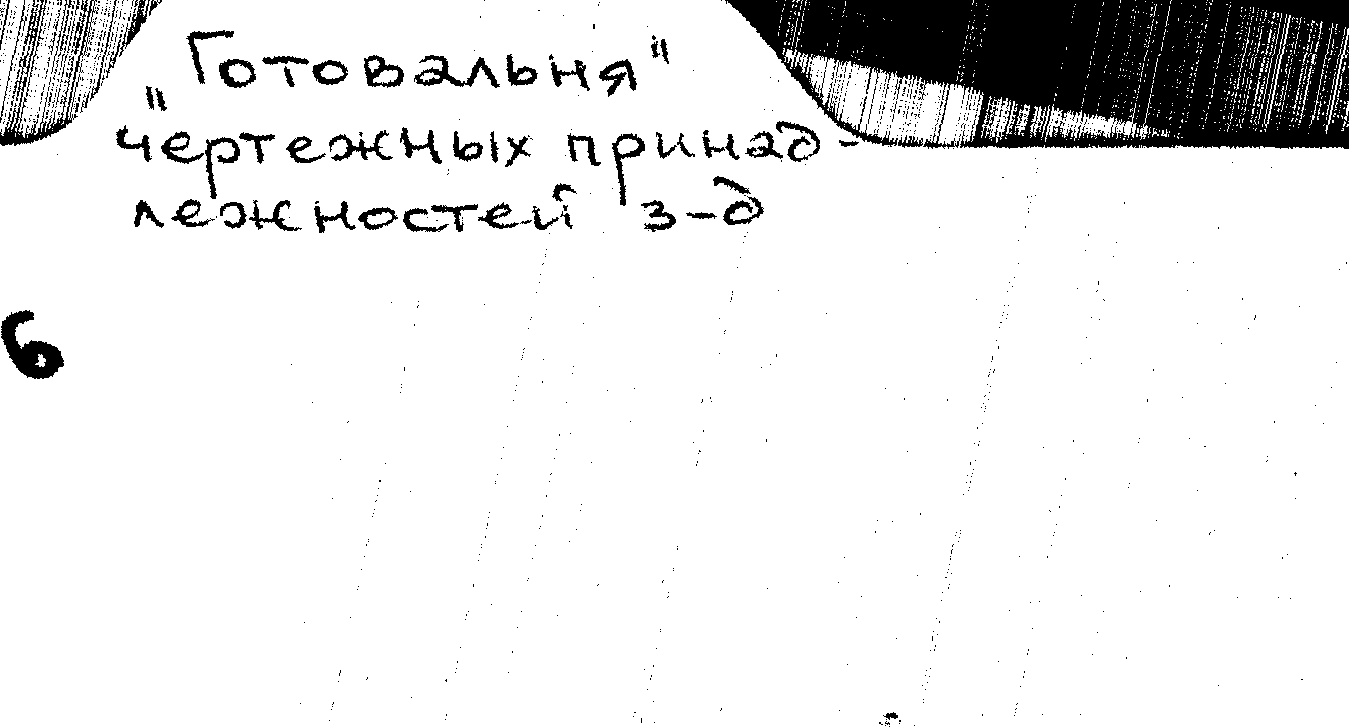 „Готовальня"
чертежных принад-
лежностей з-д
6